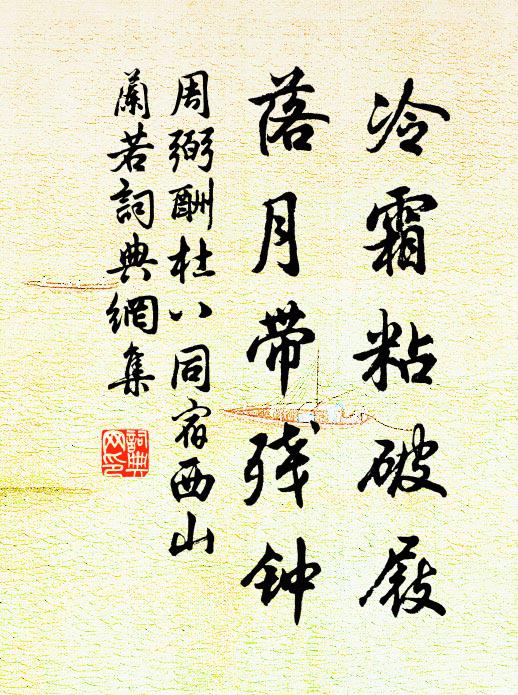 冷霜粘破屐
落月带残钟
周弼酬杜八同宿西山
蘭若詞典網集
詞典
网印